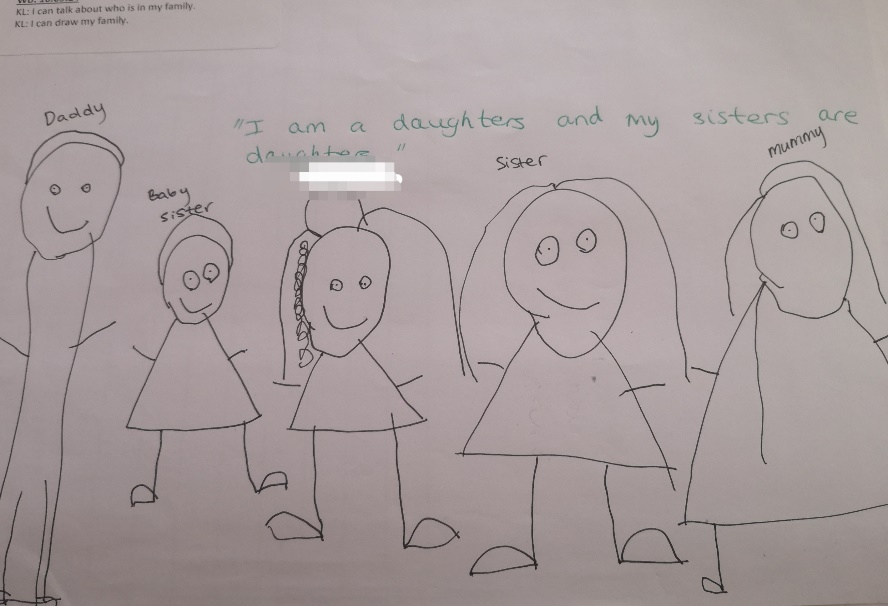 KL: I can talk about who is in my family.
KL: I can draw my family.
Daddy
"I am a daughters and my sisters are
daughters "
Baby
sister
Sister
Mummy